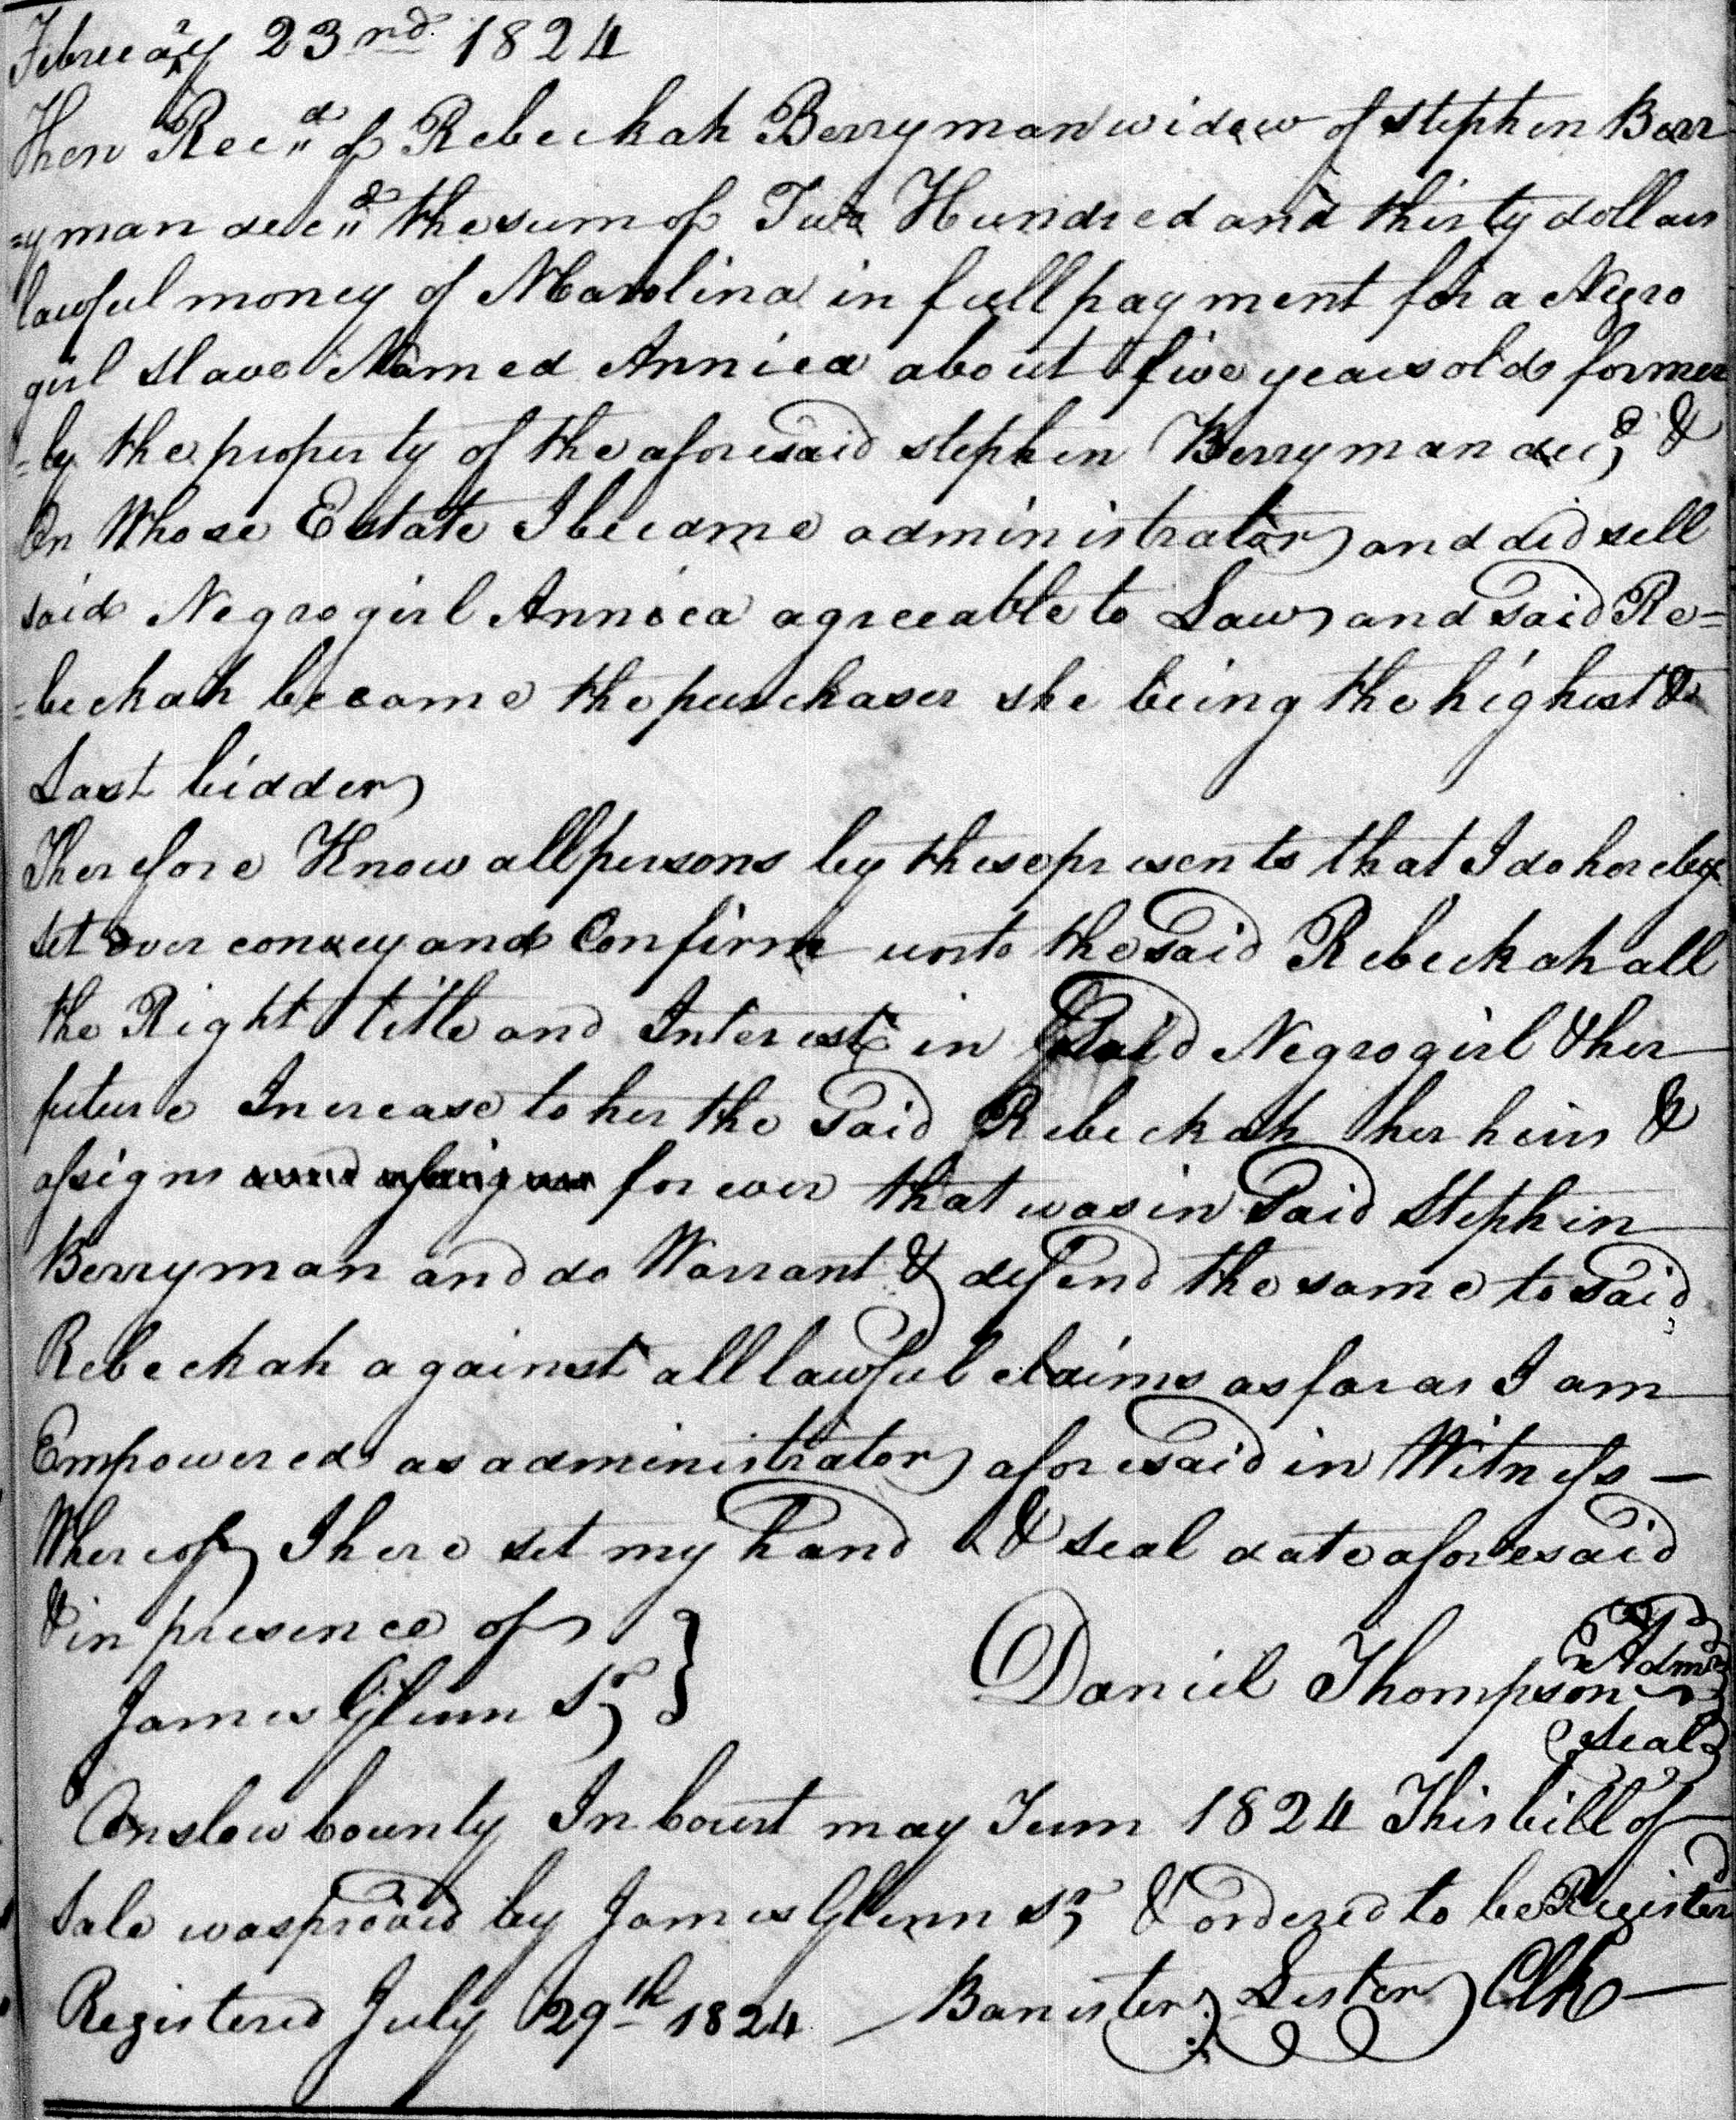 February 23rd 1824
Then Recd of Rebeckah Berryman widow of Stephen Berr
=yman decd the sum of Two Hundred and thirty dollars
lawful money of Nº Carolina in full payment for a Negro
girl slave Named Annica about five years old former
=ly the property of the aforesaid stephen Berryman decd &
On Whose Estate I became administrator and did sell
said Negro girl Annica agreeable to Law and said Re=
=beckah became the purchaser she being the highest &
Last bidder
Therefore Know all persons by these presents that I do hereby
set over convey and Confirm unto the said Rebeckah all
the Right title and Interest in Said Negro girl & her
future Increase to her the Said Rebeckah her heirs &
assigns for ever that was in Said Stephen
Berryman and do Warrant & defend the same to Said
Rebeckah against all lawful claims as far as I am
Empowered as administrator aforesaid in Witness —
Whereof I here set my hand & seal date aforesaid
& in presence of }
James Glenn Sr Daniel Thompson Admr
Seal
Onslow County In Court may Term 1824 This bill of
Sale was proved by James Glenn Sr & ordered to be Registered
Registered July 29th 1824 Banister Lester Clk —